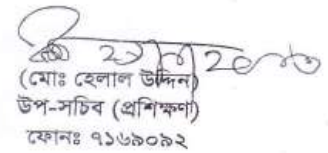 (মোঃ হেলাল উদ্দিন)
উপ-সচিব (প্রশিক্ষণ)
ফোনঃ ৭১৬৯০৯২